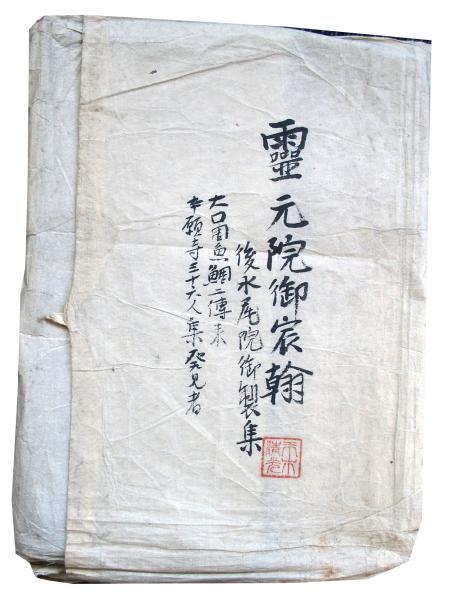 靈元院御宸翰
後水尾院御製集
大口周魚鯛二傳来
本願寺三十六人集発見者